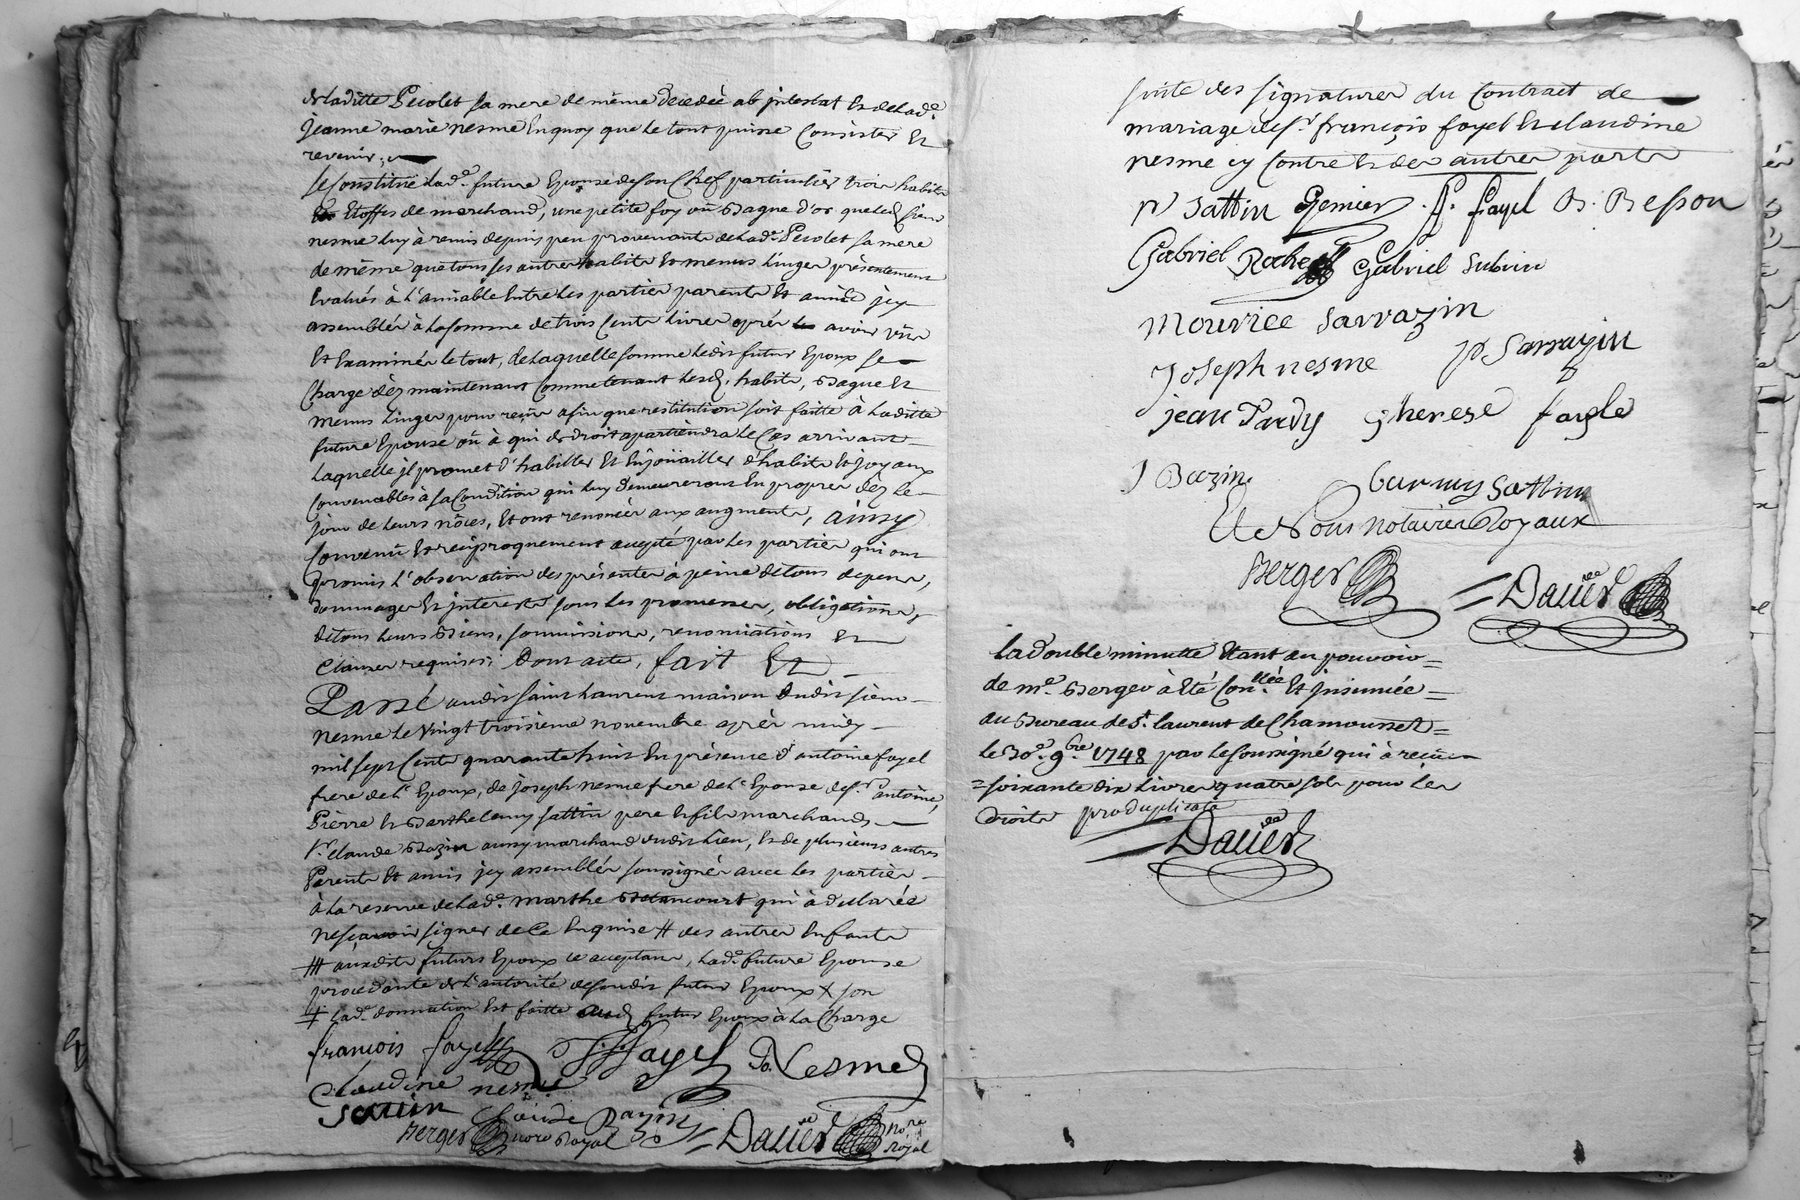 de laditte Perolet sa mere de même decedée ab jntestat Et de lad.e
jeanne marie nesme En quoy que le tout puisse Consister Et
revenir;
se Constitüe lad.e future Epouse de son Chef particulier trois habits
Etoffes de marchand, une petite foy où Bague d'or que led. sieur
nesme luy à remis depuis peu provenante de lad.e Perolet sa mere
de même que tous ses autres habits Et menus linges présentement
Evalués à l'amiable Entre les parties parents Et amis jcy
assemblés à la somme de trois Cents livres aprés avoir vûs
Et Examinés le tout, de laquelle somme ledit futur Epoux se
Charge dès maintenant Comme tenant lesd. habits, Bague Et
menus linges pour reçus afin que restitution soit faitte à laditte
future Epouse où à qui de droit apartiendra le Cas arrivant
laquelle jl promet d'habiller Et Enjoüailler d'habits Et joyaux
Convenables à sa Condition qui luy demeureront En propres dès le
jour de leurs nôces, Et ont renoncés aux augments, ainsy
Convenû Et reciproquement accepté par les parties qui ont
promis l'observation des présentes à peine de tous depens,
dommages Et jnterests sous les promesses, obligations,
de tous leurs Biens, soumissions, renonciations Et
Clauses requises; Dont acte, fait Et
Passé audit saint Laurent maison dudit sieur
nesme le vingt troisieme novembre après midy
mil sept Cents quarante huit En présence d'antoine fayel
frere de l'Epoux, de joseph nesme frere de l'Epouse des s.rs antoine,
Pierre Et Barthelemy sattin pere Et fils marchands
s.r claude Bazin aussy marchand dudit lieu, Et de plusieurs autres
Parents Et amis jcy assemblés soussignés avec les parties
à la reserve de lad.e marthe Betancourt qui à declarée
ne sçavoir signer de Ce Enquise # des autres Enfants
auxdits futurs Epoux ce acceptans, lad.e future Epouse
procedante de l'autorité de sondit futur Epoux X son
lad.e donnation Est faitte aud. futur Epoux à la Charge
francois fayel J. Fayel Jo. Nesme
Claudine nesme
sattin Claude Bazin
Berger nore Royal Dauier nore Royal
suite des signatures du Contract de
mariage de s.r françois fayel Et claudine
nesme cy Contre Et des autres parts
p sattin Grenier f. fayel B. Besson
Gabriel Roche Gabriel Subrin
Mourice Sarrazin
Joseph nesme P Sarrazin
jean Pardy therese fayle
J Bazin Barmy Sattin
Et Nous notaires Royaux
Berger Dauier
la double minutte Etant au pouvoir
de m.e Berger à Eté Con.llée Et jnsinuée
au Bureau de S.t laurent de Chamousset
le 30.e 9.bre 1748 par le soussigné qui à reçu
soixante dix livres quatre sols pour les
droits produplicata
Dauier